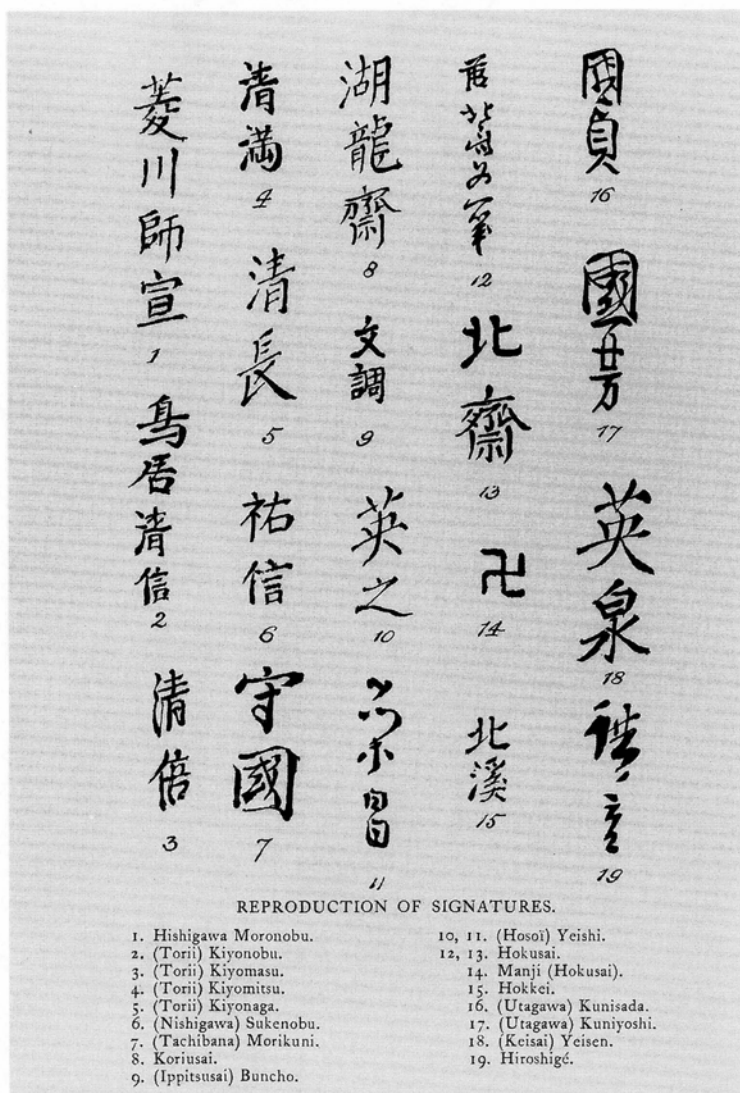 菱川師宣
1
鳥居清信
2
清倍
3
清満
4
清長
5
祐信
6
守國
7
湖龍齋
8
文調
9
英之
10
昌
11
前北斎為一筆
12
北齋
13
卍
14
北溪
15
國貞
16
國芳
17
英泉
18
19
REPRODUCTION OF SIGNATURES.
1. Hishigawa Moronobu.
2. (Torii) Kiyonobu.
3. (Torii) Kiyomasu.
4. (Torii) Kiyomitsu.
5. (Torii) Kiyonaga.
6. (Nishigawa) Sukenobu.
7. (Tachibana) Morikuni.
8. Koriusai.
9. (Ippitsusai) Buncho.
10, 11. (Hosoï) Yeishi.
12, 13. Hokusai.
14. Manji (Hokusai).
15. Hokkei.
16. (Utagawa) Kunisada.
17. (Utagawa) Kuniyoshi.
18. (Keisai) Yeisen.
19. Hiroshigé.